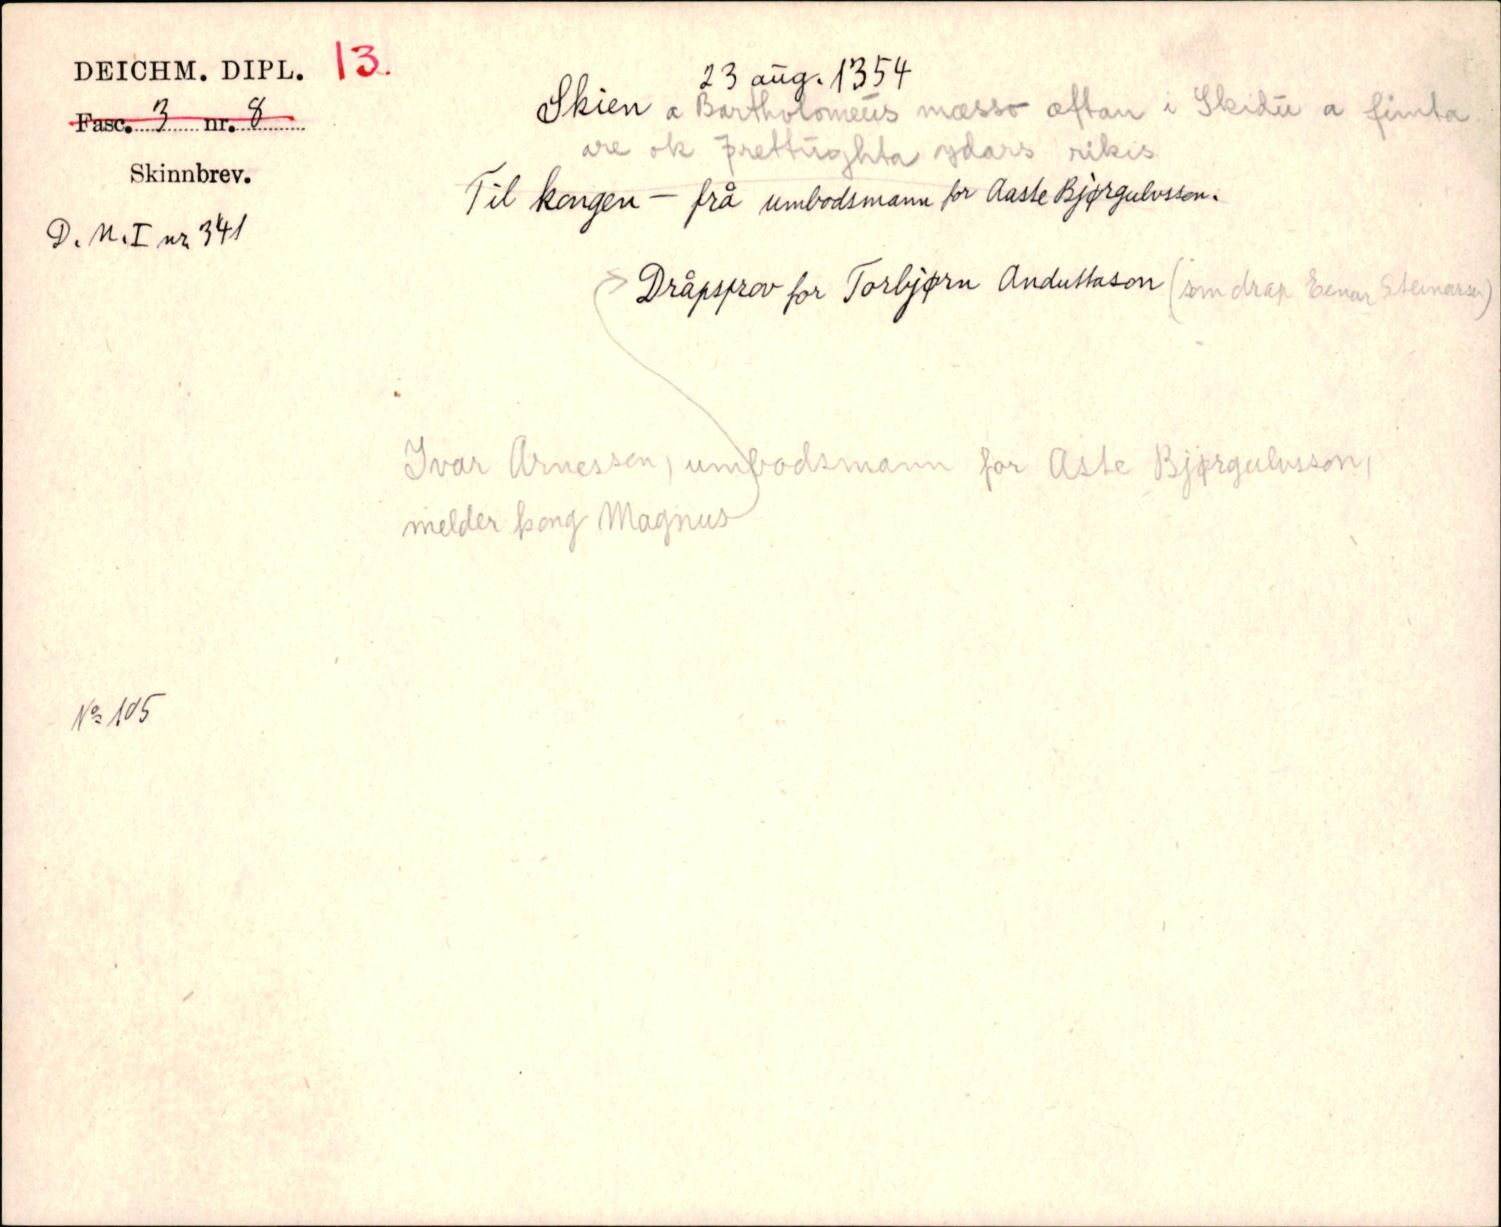 DEICHM. DIPL. 13.
Fasc. 3 nr. 8
Skinnbrev.
D. N. I nr 341
23 aug. 1354
Skien a Bartholomeus mæsso æftan i Skidu a fimta
are ok þrettughta ydars rikis
Til kongen — frå umbodsmann for Aaste Bjørgulvsson.
Dråpsprov for Torbjørn Anduttason (som drap Einar Steinarson)
Ivar Arnesson, umbodsmann for Aste Bjørgulvsson,
melder kong Magnus
No 105